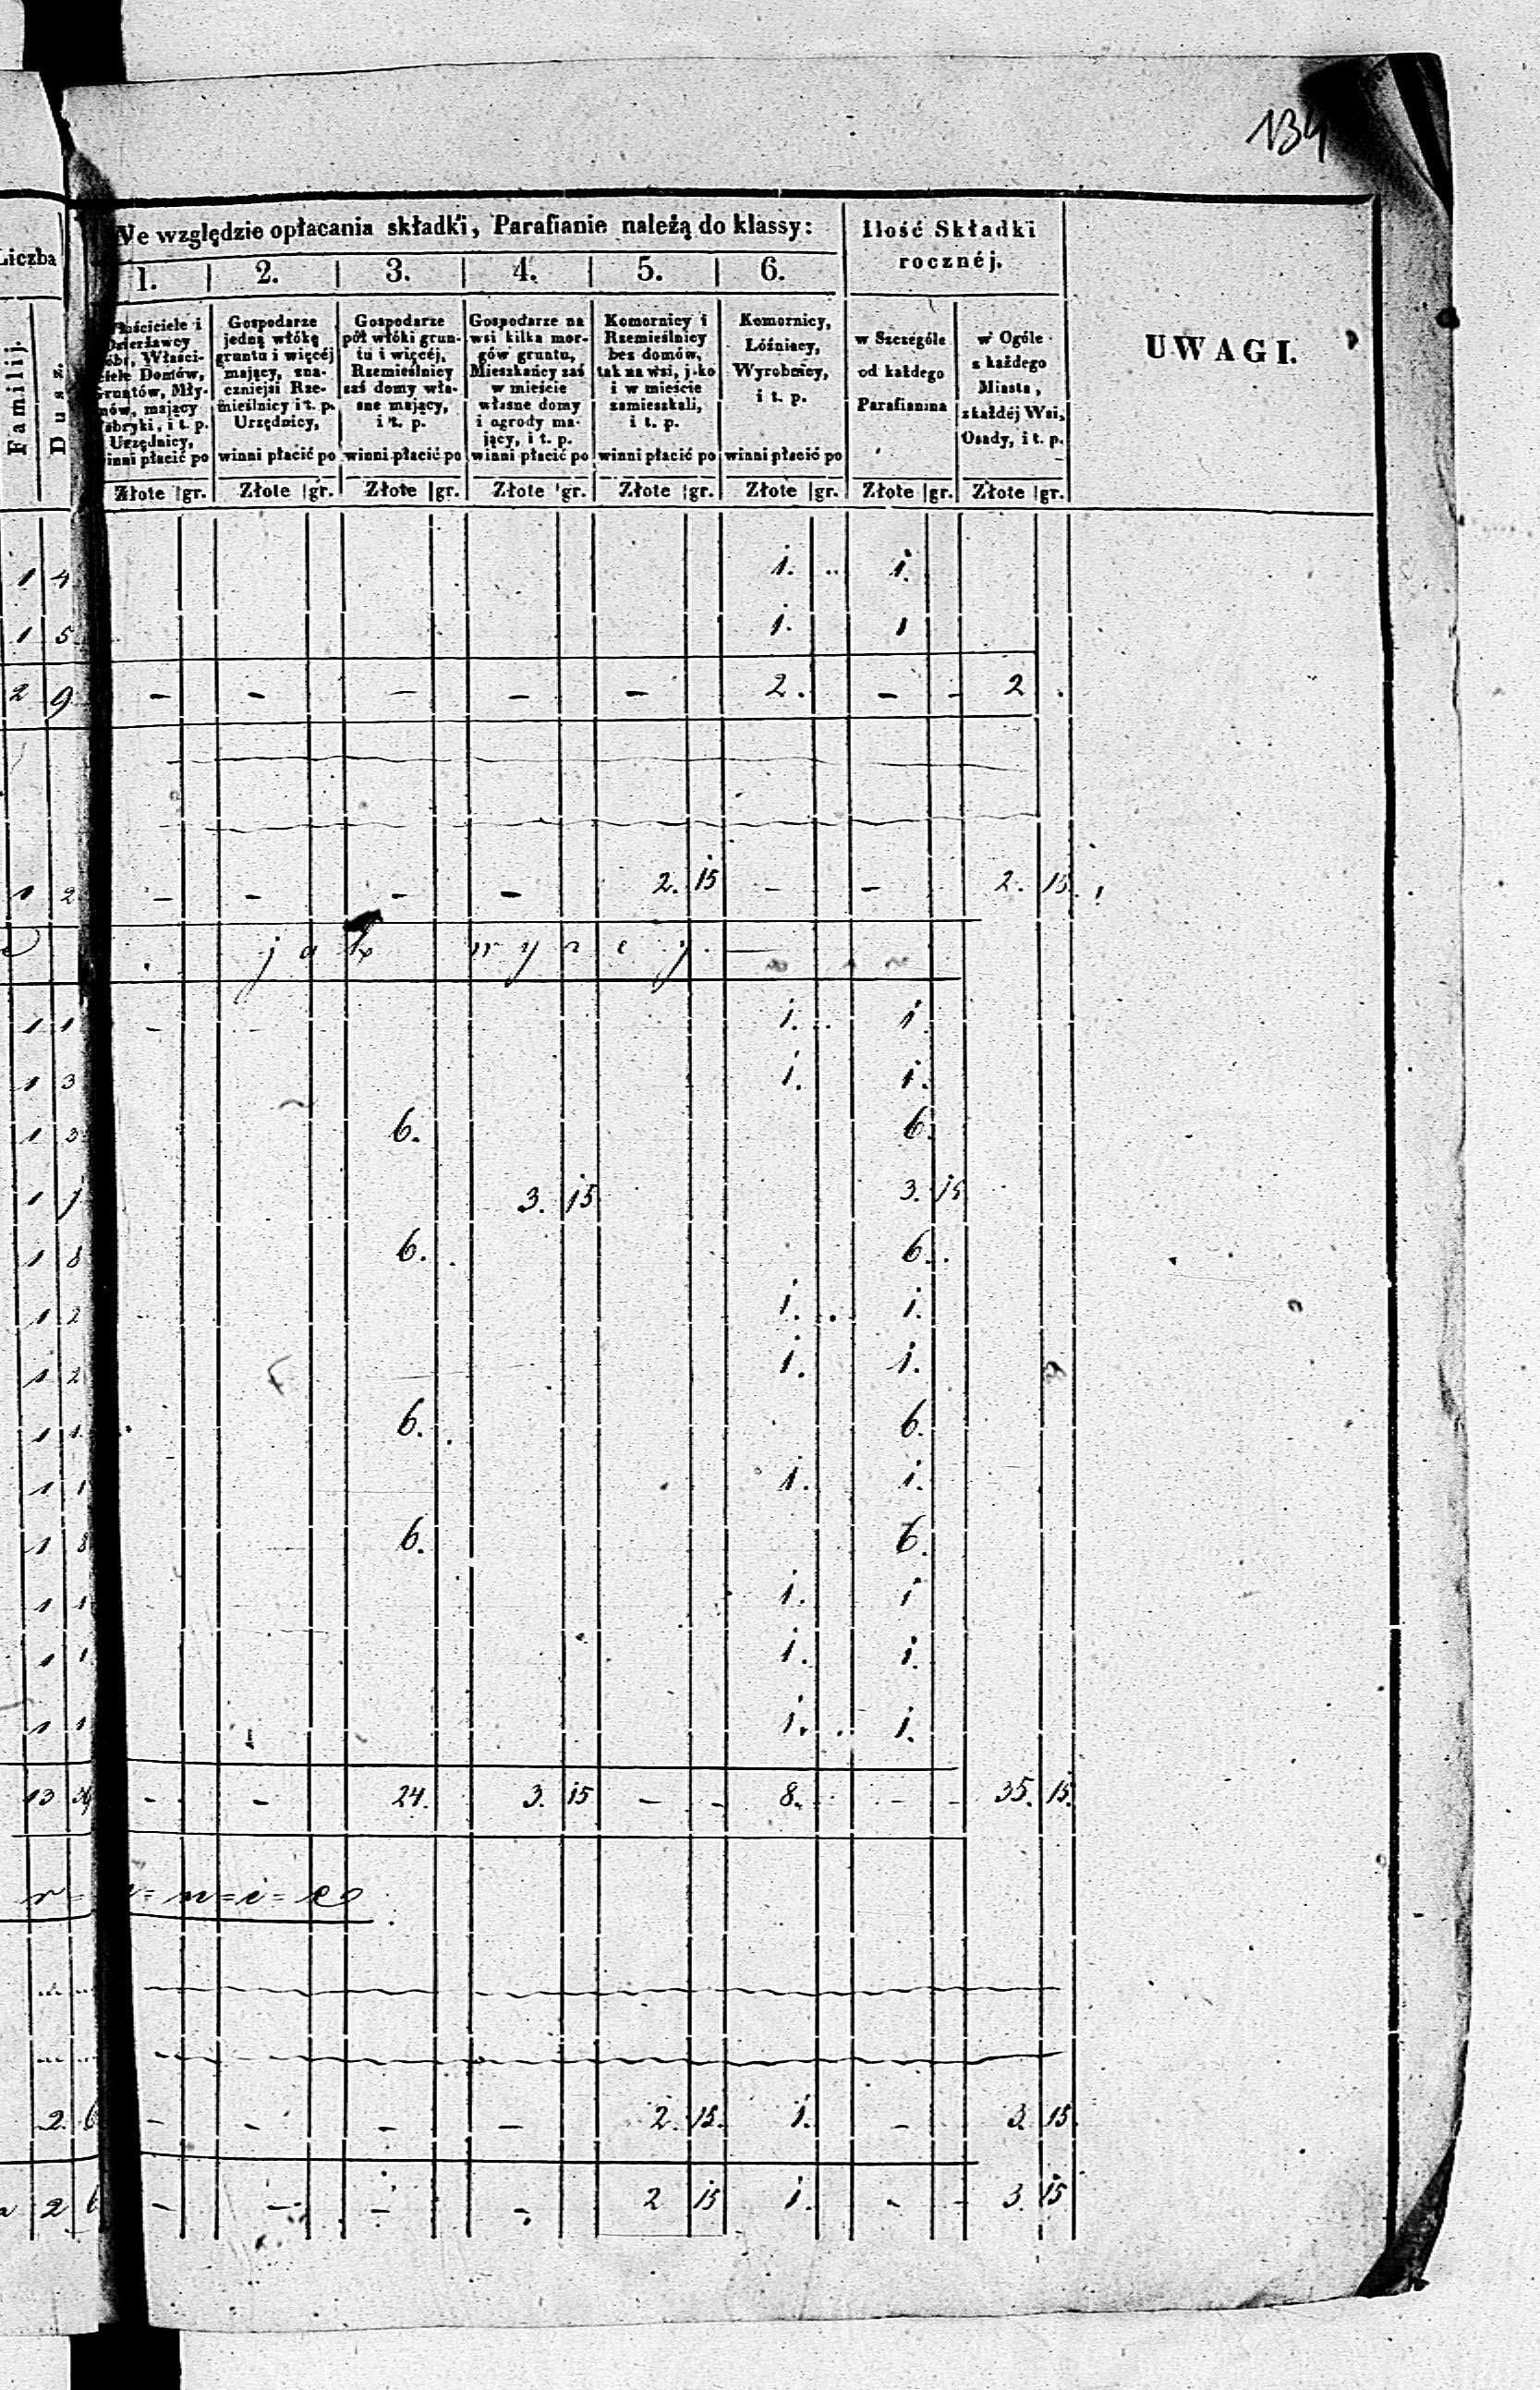 134
Liczba
We względzie opłacania składki, Parafianie należą do klassy:
Ilość Składki rocznéj.
UWAGI.
1. 2. 3. 4. 5. 6.
Familij.
Dusz.
Właściciele i Dzierżawcy dóbr, Właściciele Domów, Gruntów, Młynów, mający fabryki, i t. p. Urzędnicy, winni płacić po
Gospodarze jedną włókę gruntu i więcéj mający, znaczniejsi Rzemieślnicy i t. p. Urzędnicy, winni płacić po
Gospodarze pół włóki gruntu i więcéj, Rzemieślnicy zaś domy własne mający, i t. p. winni płacić po
Gospodarze na wsi kilka morgów gruntu, Mieszkańcy zaś w mieście własne domy i ogrody mający, i t. p. winni płacić po
Komornicy i Rzemieślnicy bez domów, tak na wsi, jako i w mieście zamieszkali, i t. p. winni płacić po
Komornicy, Lóźniacy, Wyrobnicy, i t. p. winni płacić po
w Szczególe od każdego Parafianina
w Ogóle z każdego Miasta, z każdéj Wsi, Osady, i t. p.
Złote gr. Złote gr. Złote gr. Złote gr. Złote gr. Złote gr. Złote gr. Złote gr.
1 4 1. .. 1.
1 5 1. 1
2 9 - - - - - 2. - - 2 .
1 2 - - - - 2. 15 - - 2. 15.
jak wyżej.
1 1 - 1. .. 1.
1 3 1. 1.
1 3 6. 6.
1 3. 15 3. 15
1 8 6. . 6. .
1 2 1. . 1.
1 2 1. 1.
1 1 6. . 6.
1 1 1. 1.
1 8 6. 6.
1 1 1. 1
1 1 1. 1.
1 1 1. . 1.
13 - - 24. 3. 15 - - 8. - - 35. 15.
2 6 - - - - 2. 15. 1. - 3. 15
2 6 - - - - 2 15 1. - - 3. 15